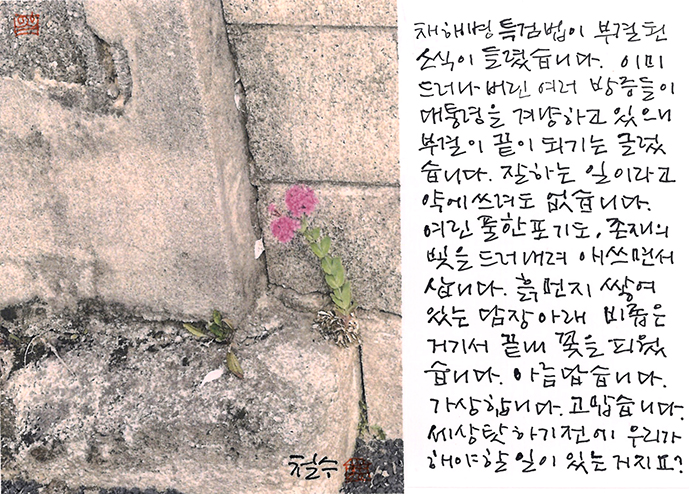 채해병 특검법이 부결된
소식이 들렸습니다. 이미
드러나 버린 여러 방증들이
대통령을 겨냥하고 있으니
부결이 끝이 되기는 글렀
습니다. 잘하는 일이라고
약에 쓰려도 없습니다.
여린 풀한포기도, 존재의
빛을 드러내려 애쓰면서
삽니다. 흙먼지 쌓여
있는 담장아래 비좁은
거기서 끝내 꽃을 피웠
습니다. 아름답습니다.
가상합니다. 고맙습니다.
세상탓 하기전에 우리가
해야할 일이 있는 거지요?
철수